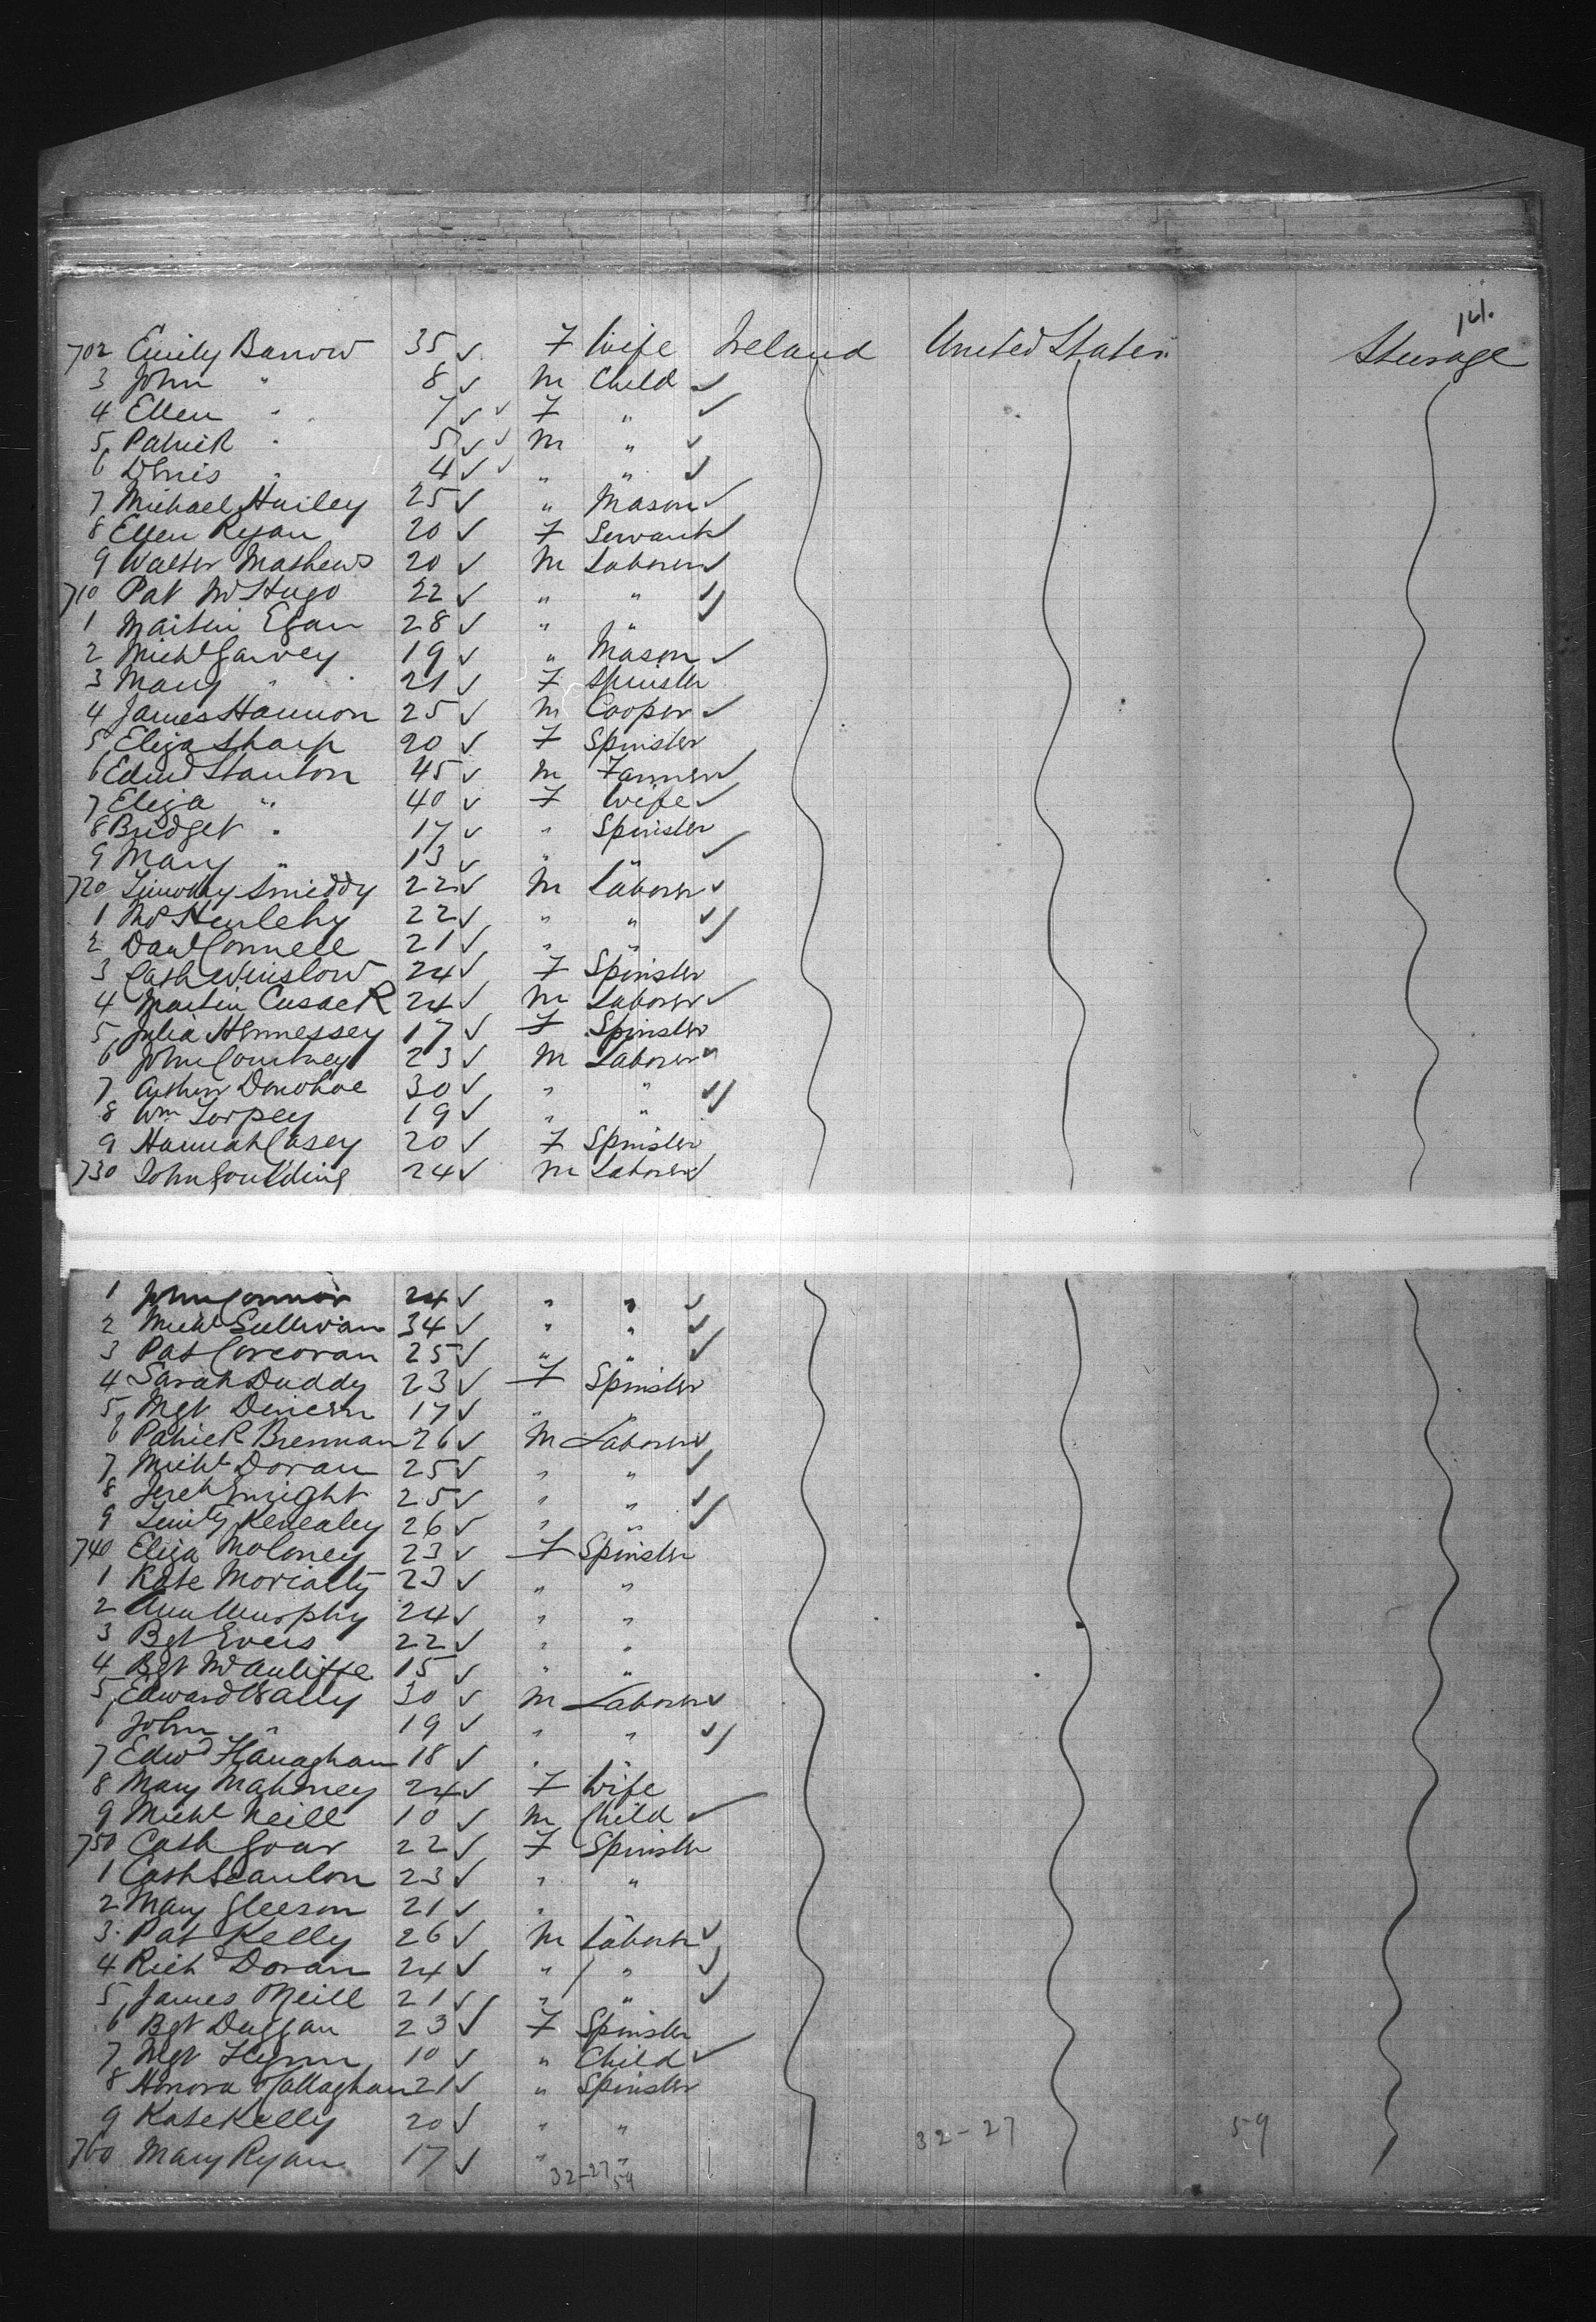 141.
702 Emily Barrow 35 ✓ F Wife Ireland United States Steerage
3 John " 8 ✓ M Child ✓
4 Ellen " 7 ✓ ✓ F " ✓
5 Patrick " 5 ✓ ✓ M " ✓
6 Denis " 4 ✓ ✓ " " ✓
7 Michael Hurley 25 ✓ " Mason ✓
8 Ellen Ryan 20 ✓ F Servant ✓
9 Walter Mathews 20 ✓ M Laborer ✓
710 Pat McHugo 22 ✓ " " ✓
1 Martin Egan 28 ✓ " " ✓
2 Michl Garvey 19 ✓ " Mason ✓
3 Mary " 21 ✓ F Spinster
4 James Hannon 25 ✓ M Cooper ✓
5 Eliza Sharp 20 ✓ F Spinster
6 Edmd Stanton 45 ✓ M Farmer ✓
7 Eliza " 40 ✓ F Wife ✓
8 Bridget " 17 ✓ " Spinster
9 Mary " 13 ✓ " " ✓
720 Timothy Smiddy 22 ✓ M Laborer ✓
1 Hurlehy 22 ✓ " " ✓
2 Danl Connell 21 ✓ " " ✓
3 Cath Winslow 24 ✓ F Spinster
4 Martin Cusack 24 ✓ M Laborer ✓
5 Julia Hennessey 17 ✓ F Spinster
6 John Courtney 23 ✓ M Laborer ✓
7 Arthur Donohoe 30 ✓ " " ✓
8 Wm Torpey 19 ✓ " " ✓
9 Hannah Casey 20 ✓ F Spinster
730 John Goulding 24 ✓ M Laborer ✓
1 John Connor 24 ✓ " " ✓
2 Michl Sullivan 34 ✓ " " ✓
3 Pat Corcoran 25 ✓ " " ✓
4 Sarah Duddy 23 ✓ F Spinster
5 Mgt Dineen 17 ✓ " "
6 Patrick Brennan 26 ✓ M Laborer ✓
7 Michl Doran 25 ✓ " " ✓
8 Jereh Enright 25 ✓ " " ✓
9 Timty Kenealey 26 ✓ " " ✓
740 Eliza Moloney 23 ✓ F Spinster
1 Kate Moriarty 23 ✓ " "
2 Ann Murphy 24 ✓ " "
3 Bgt Evers 22 ✓ " "
4 Bgt McAuliffe 15 ✓ " "
5 Edward 30 ✓ M Laborer ✓
6 John " 19 ✓ " " ✓
7 Edwd Flanaghan 18 ✓ " "
8 Mary Mahoney 24 ✓ F Wife
9 Michl Neill 10 ✓ M Child ✓
750 Cath Goar 22 ✓ F Spinster
1 Cath Scanlon 23 ✓ " "
2 Mary Gleeson 21 ✓ " "
3 Pat Kelly 26 ✓ M Laborer ✓
4 Richd Doran 24 ✓ " " ✓
5 James ONeill 21 ✓ " " ✓
6 Bgt Duggan 23 ✓ F Spinster
7 Mgt Flynn 10 ✓ " Child ✓
8 Honora OCallaghan 21 ✓ " Spinster
9 Kate Kelly 20 ✓ " " 32-27 59
760 Mary Ryan 17 ✓ " "
32-27 59